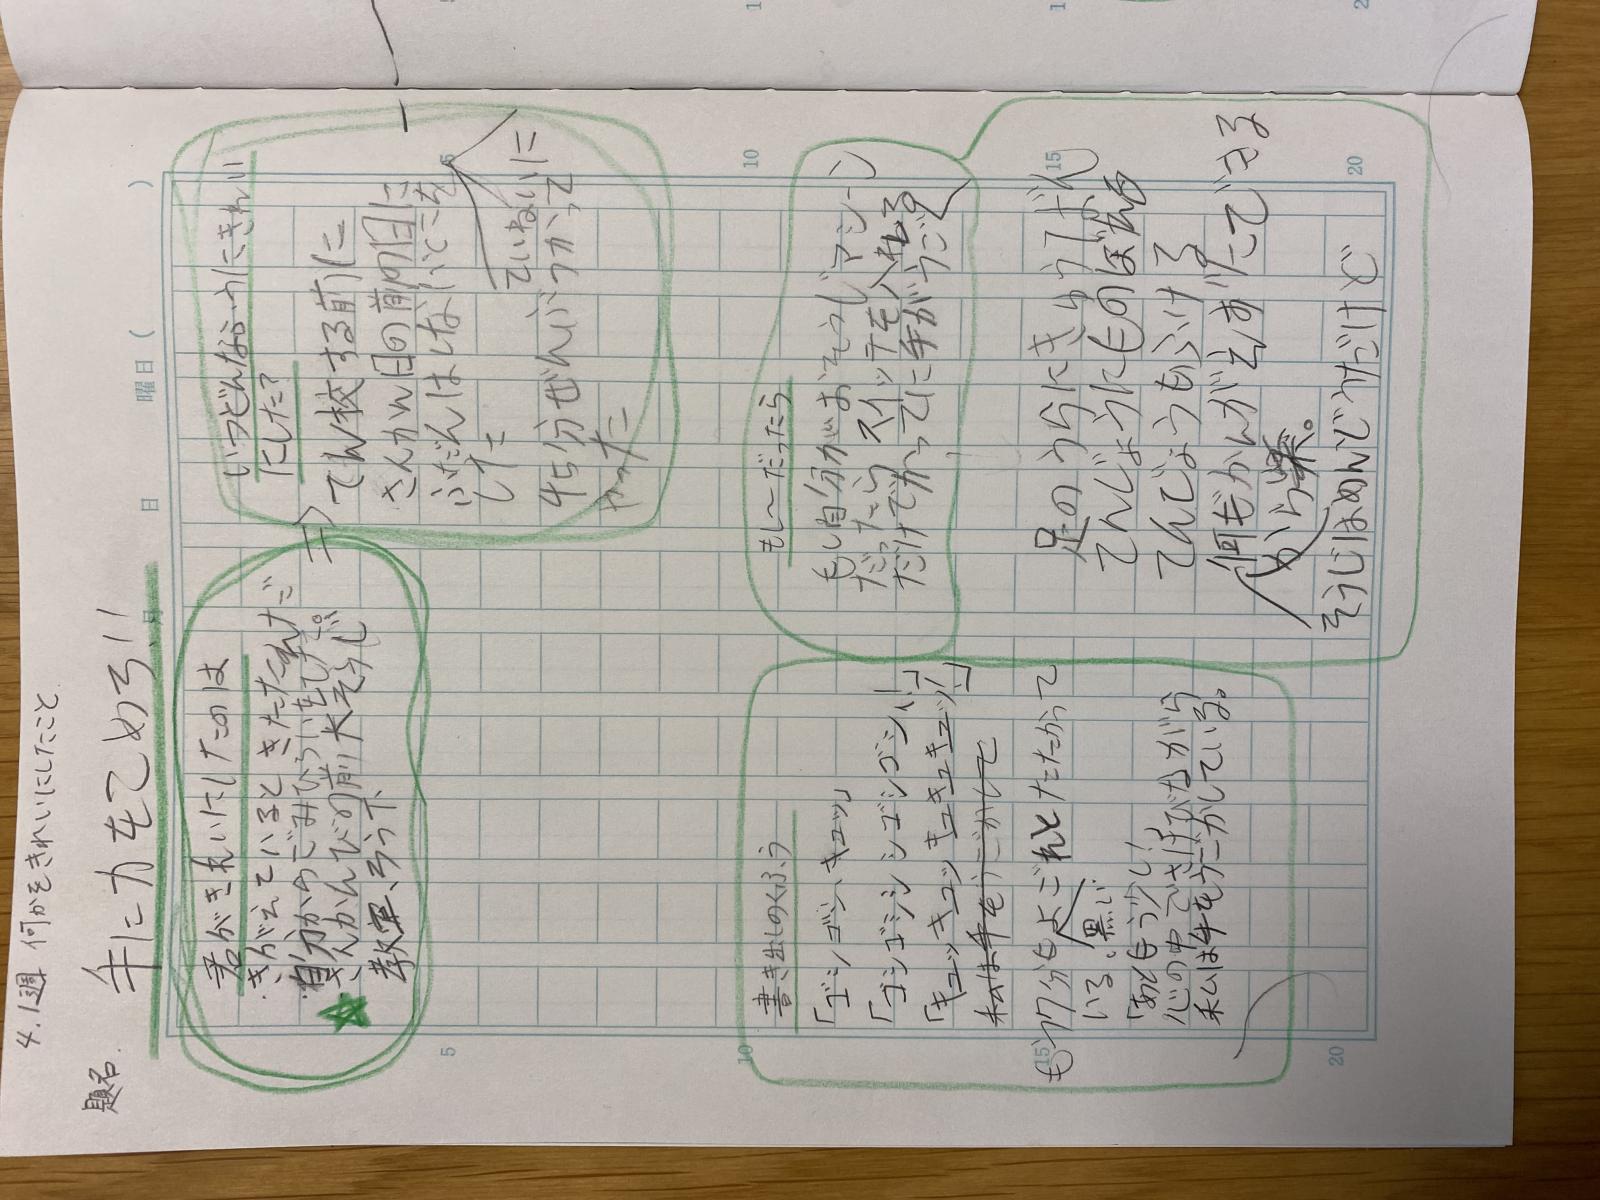 4.1週 何かをきれいにしたこと
題名
手に力をこめろ!!
月 日 曜日 ( )
君がきれいにしたのは
きがえているときたおれたご
自分のごみひろいをして
さんかんびの前大そうじ
教室、ろう下
いつどんなふうにきれい
にした?
てん校する前に
さんかん日の前の日に
ふだんはしないところを
した
ていねいに
45分ぜんぶつかって
やった
書き出しのくふう
「ゴシゴシ、キュッ」
「ゴシゴシゴシゴシゴシ!」
「キュッキュッキュキュキュッ!」
私は手をうごかして
もう7分もよごれとたたかって
いる。
黒い
「あともう少し!
心の中でさけびながら
私は手をうごかしている。
もし〜だったら
もし自分がおそうじマシーン
だったらスイッチを入れる
だけでかってに手がうごく
足のうらにきゅうばん
てんじょうにものぼれる
てんじょうもふける
何もかんがえずにできる
から楽。
そうじはめんどうだけど
5
10
15
20
5
10
15
20